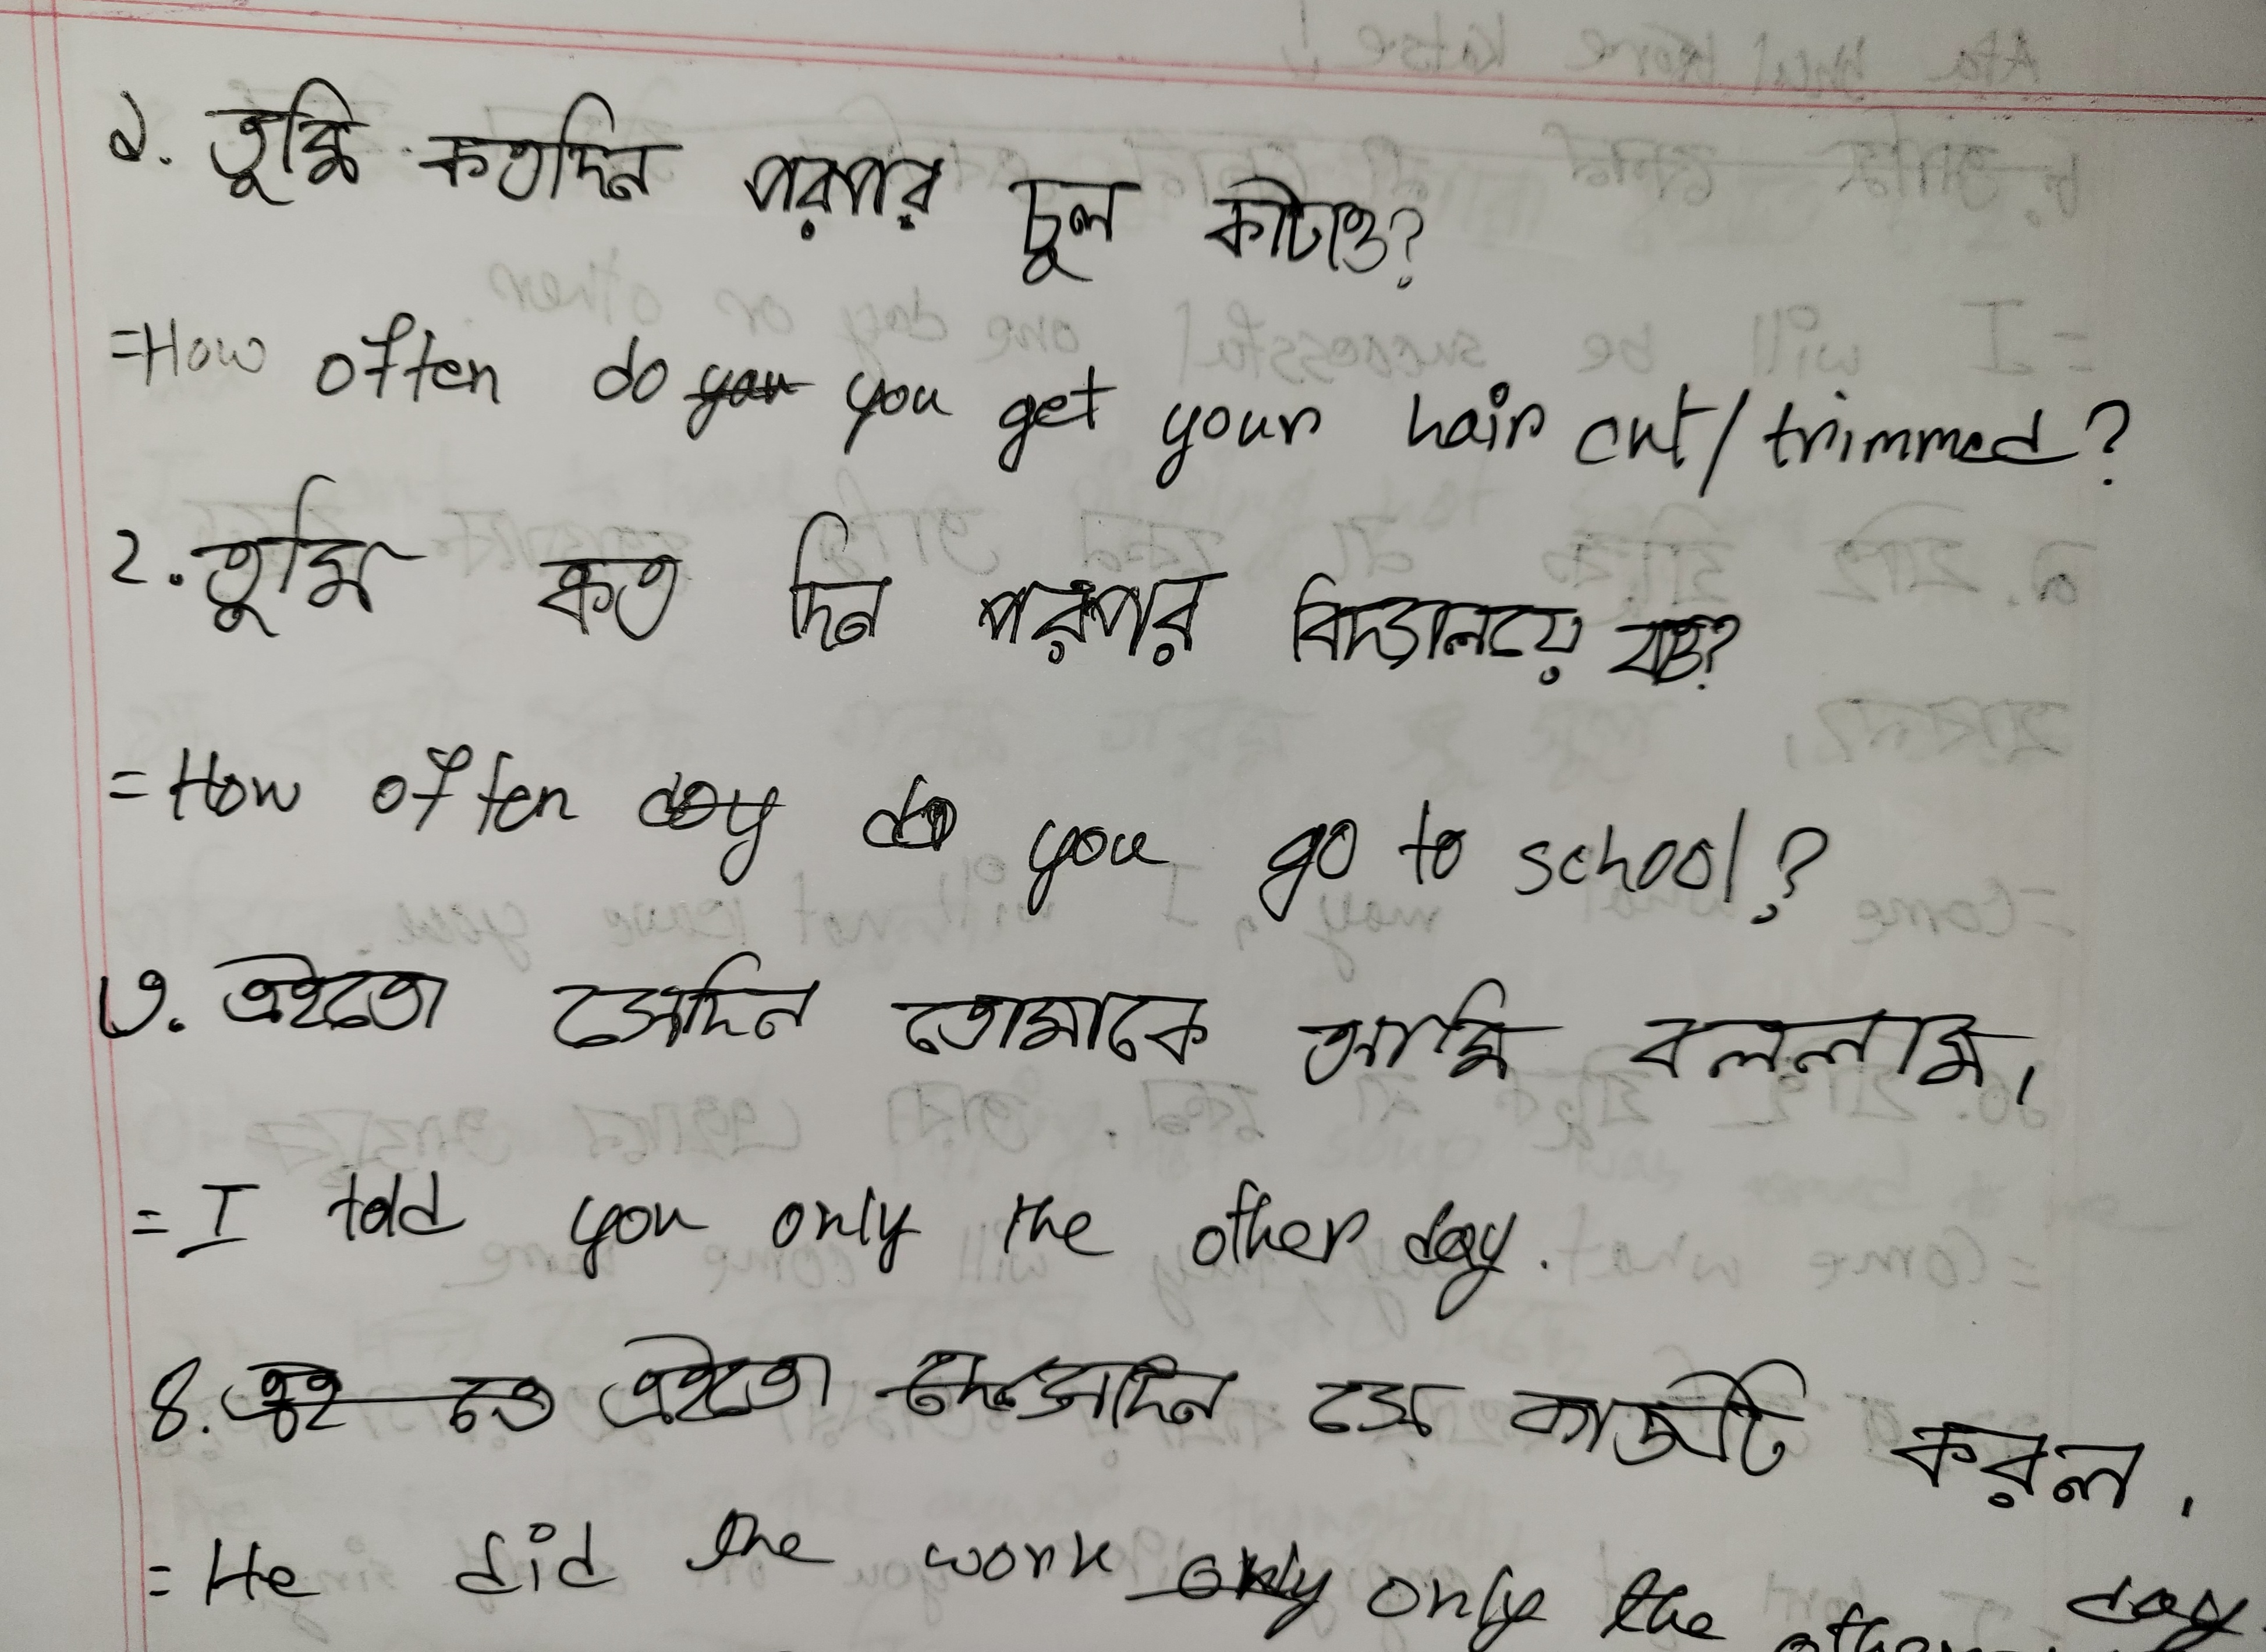 ১. তুমি কতদিন পরপর চুল কাটাও?
=How often do you you get your hair cut/trimmed?
২. তুমি কত দিন পরপর বিদ্যালয়ে যাও?
= How often day do you go to school?
৩. এইতো সেদিন তোমাকে আমি বললাম।
= I told you only the other day.
৪. এই তো এইতো সেদিন সে কাজটি করল।
= He did the work only only the other day